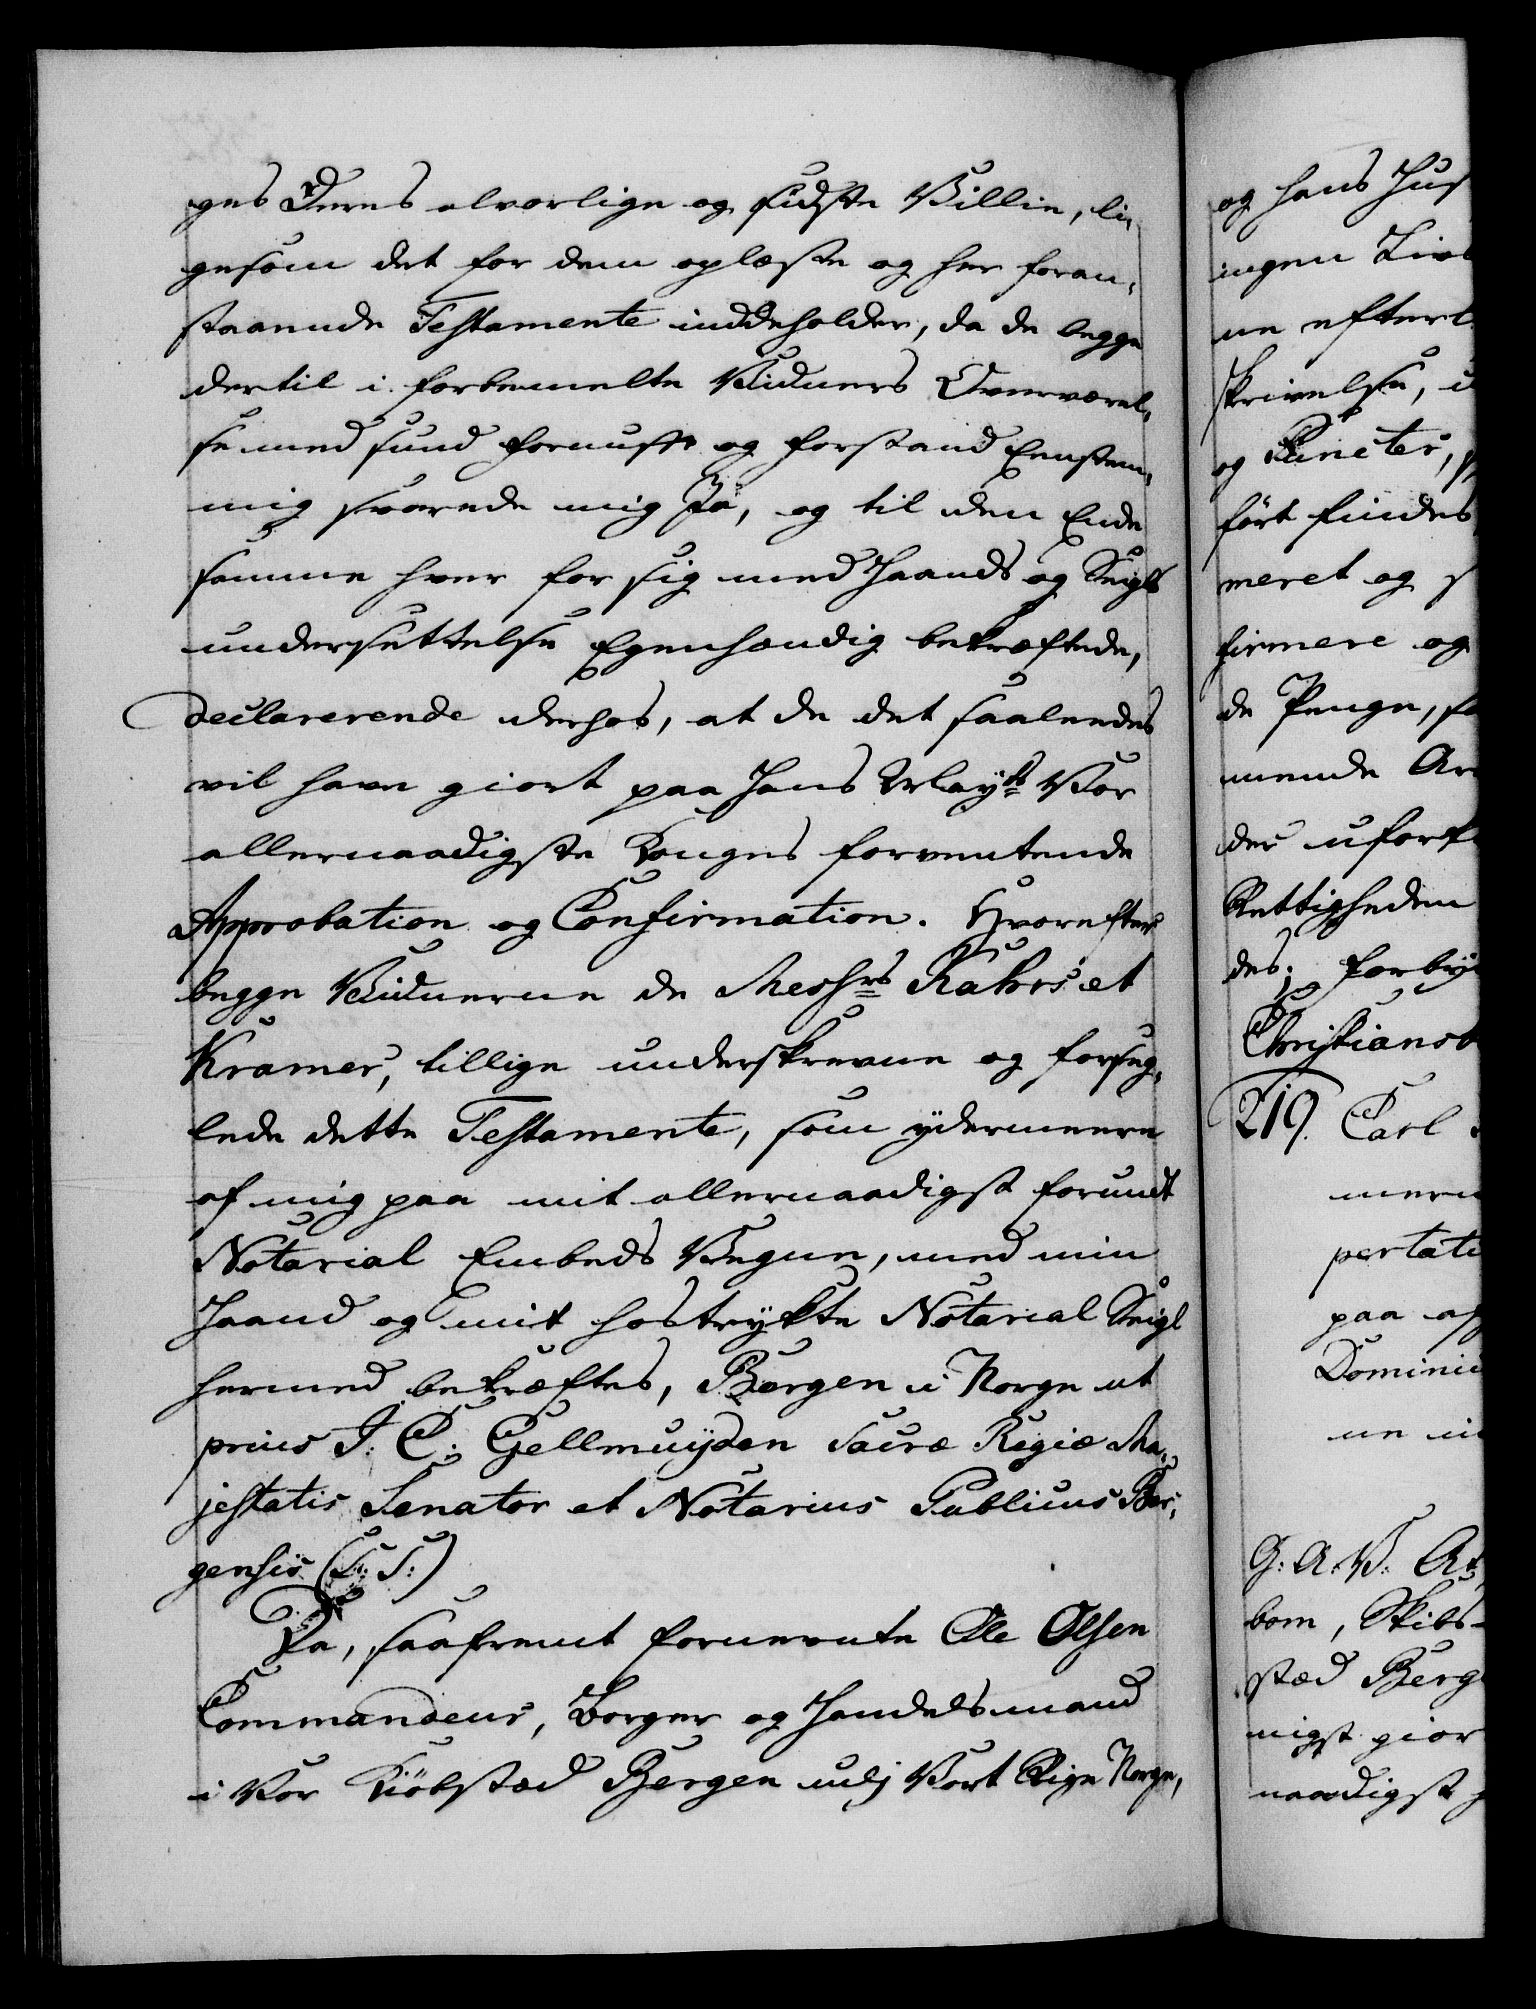 ges Deres alvorlige og sidste Villie, li-
gesom det for dem oplæste og her foran-
staaende Testamente inddeholder, da de begge
dertil i forbemelte Vidners Overværel-
se med sund Fornuft og Forstand Eenstem-
mig svarede mig Ja, og til den Ende
samme hver for sig med Haands og Seigls
undersættelse Egenhændig bekræftede,
declarerende derhos, at de det saaledes
vil have giort paa Hans Mayts Vor
allernaadigste Konges forventende
Approbation og Confirmation. Hvorefter
begge Vidnerne de Messrs Rahrs et
Kramer, tillige underskrevne og forseg-
lede dette Testamente, som ydermeere
af mig paa mit allernaadigst forundt
Notarial Embeds Vegne, med min
Haand og mit hostrykte Notarial Seigl
hermed bekræftes, Bergen i Norge ut
prius J: C: Gellmuyden Sacræ Regiæ Ma-
jestatis Senator et Notarius Publicus Ber-
gensis (L: S:)
Da, saafremt fornevnte Ole Olsen
Commandeur, Borger og Handelsmand
i Vor Kiöbstæd Bergen udj Vort Rige Norge,
og hans Hus
ingen Livs
ne efterl
skrivelse, i
og Puncter,
fört findes
meret og s
firmere og
de Penge, so
mende Ar
des uforkr
Rettigheden
des; forby
Christiansb
219. Carl
pertati
paa
Dominic
G: A: V: At
bom, Skibs-
stæd Berg
migst gior
naadigst